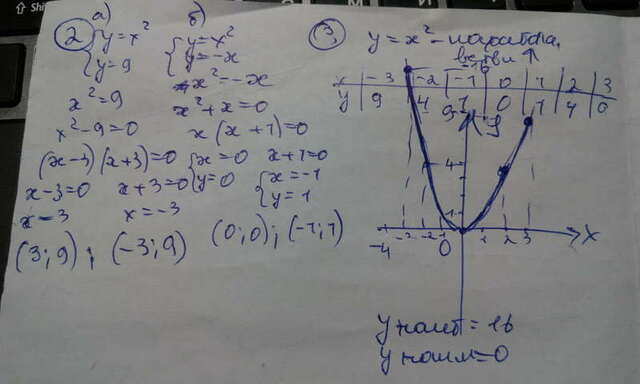 Shi
2
а)
{ y = x²
{ y = 9
x² = 9
x² - 9 = 0
(x-3)(x+3) = 0
x-3=0 x+3=0
x=3 x=-3
(3; 9) ; (-3; 9)
б)
{ y = x²
{ y = -x
x² = -x
x² + x = 0
x(x+1) = 0
{ x = 0 x+1=0
{ y = 0 { x = -1
{ y = 1
(0; 0) ; (-1; 1)
3
y = x² - парабола,
ветви ↑
x | -3 | -2 | -1 | 0 | 1 | 2 | 3
y | 9 | 4 | 1 | 0 | 1 | 4 | 0
16
9
y
4
1
-4 -3 -2 -1 0 1 2 3 x
y наиб = 16
y наим = 0